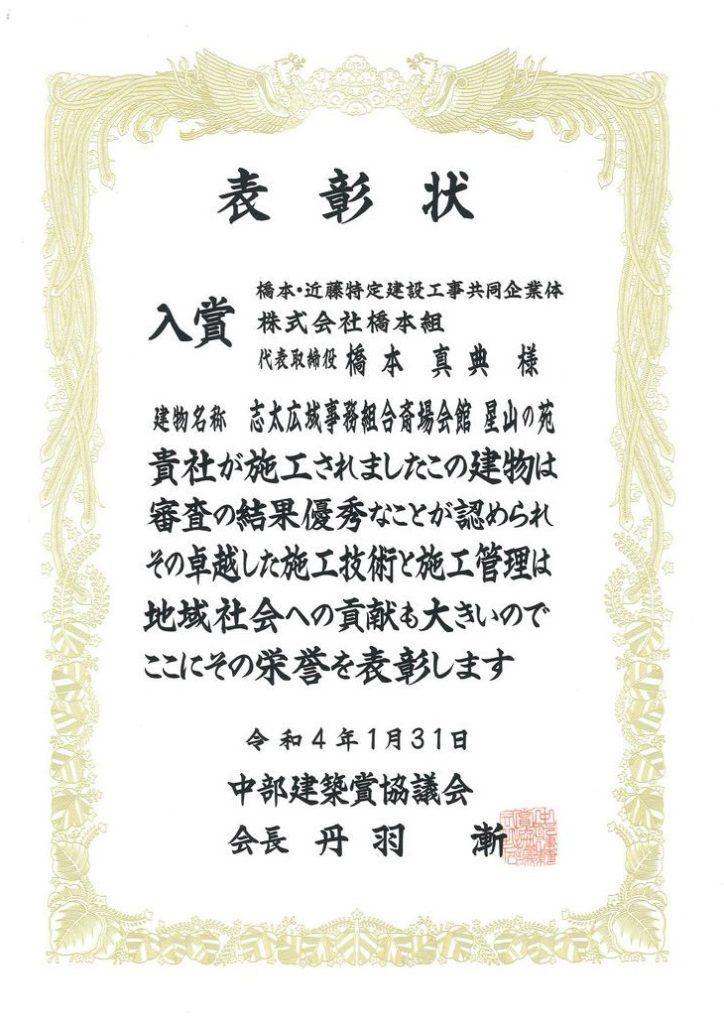 表彰状
入賞
橋本・近藤特定建設工事共同企業体
株式会社橋本組
代表取締役 橋本 真典 様
建物名称 志太広域事務組合斎場会館 星山の苑
貴社が施工されましたこの建物は
審査の結果優秀なことが認められ
その卓越した施工技術と施工管理は
地域社会への貢献も大きいので
ここにその栄誉を表彰します
令和4年1月31日
中部建築賞協議会
会長 丹羽 漸